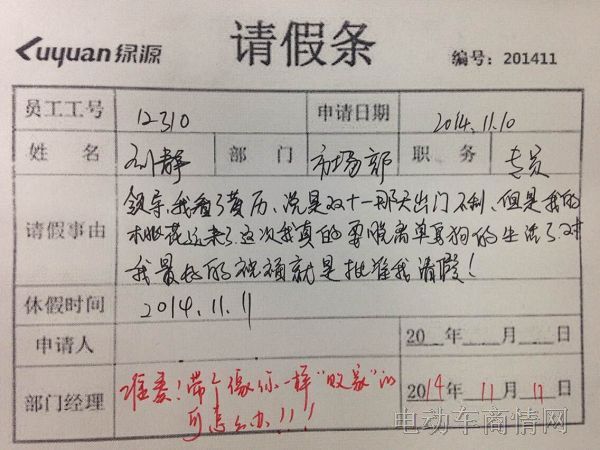 Luyuan绿源 请假条 编号：201411
员工工号 12310 申请日期 2014.11.10
姓名 刘静 部门 市场部 职务 专员
请假事由 领导，我看了黄历，说是双十一那天出门不利，但是我的
桃花运来了，这次我真的要脱离单身狗的生活了，对
我最好的祝福就是批准我请假！
休假时间 2014.11.11
申请人 20 年 月 日
部门经理 准奏！带个像你一样“败家”的 2014年11月11日
可怎么办！！！
电动车商情网